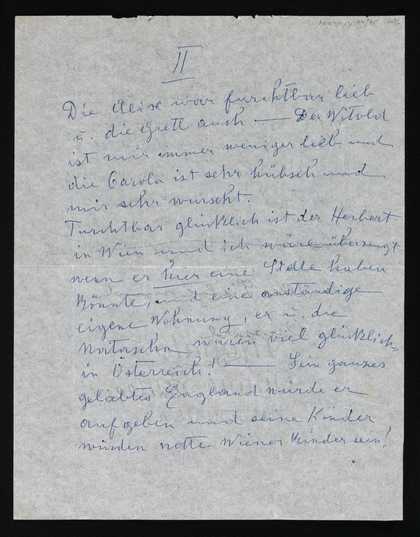 II
Die Meixe war furchtbar lieb
u. die Gretl auch — Der Witold
ist mir immer weniger lieb und
die Carola ist sehr hübsch und
mir sehr wurscht.
Furchtbar glücklich ist der Herbert
in Wien und ich wäre überzeugt
wenn er hier eine Stelle haben
könnte, und eine anständige
eigene Wohnung, er u. die
Natascha wären viel glücklich
in Österreich! — Sein ganzes
geliebtes England würde er
aufgeben und seine Kinder
würden nette Wiener Kinder sein!